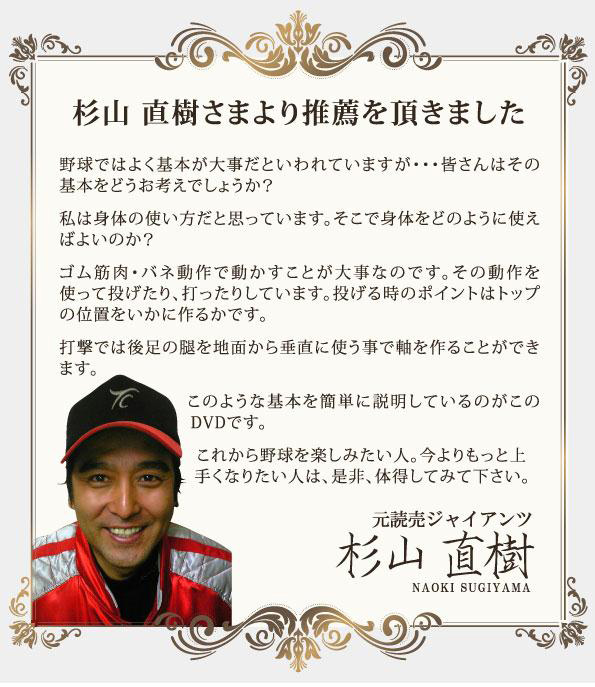 杉山 直樹さまより推薦を頂きました
野球ではよく基本が大事だといわれていますが・・・皆さんはその
基本をどうお考えでしょうか？
私は身体の使い方だと思っています。そこで身体をどのように使え
ばよいのか？
ゴム筋肉・バネ動作で動かすことが大事なのです。その動作を
使って投げたり、打ったりしています。投げる時のポイントはトップ
の位置をいかに作るかです。
打撃では後足の腿を地面から垂直に使う事で軸を作ることができ
ます。
このような基本を簡単に説明しているのがこの
DVDです。
これから野球を楽しみたい人。今よりもっと上
手くなりたい人は、是非、体得してみて下さい。
TC
元読売ジャイアンツ
杉山 直樹
NAOKI SUGIYAMA